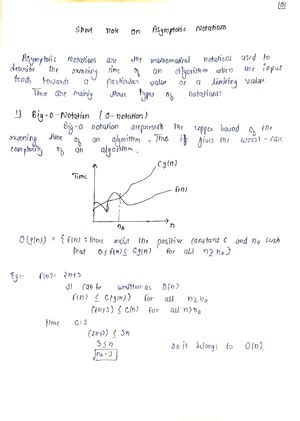 Short note on Asymptotic Notations
Asymptotic Notations are the mathematical notations used to
describe the running time of an algorithm when the input
tends towards a particular value or a limiting value
There are mainly three types of notations:
1) Big-O-Notation (O-notation)
Big-O notation represents the upper bound of the
running time of an algorithm. Thus it gives the worst-case
complexity of an algorithm.
Time
Cg(n)
f(n)
n₀
n
O(g(n)) = { f(n): there exist the positive constant c and n₀ such
that 0≤f(n)≤ Cg(n) for all n≥n₀ }
Eg:- f(n): 2n+3
It can be written as O(n)
f(n) ≤ C(g(n)) for all n≥n₀
(2n+3) ≤ C(n) for all n≥n₀
Here C=3
(2n+3) ≤ 3n
3 ≤ n
n₀=3
So it belongs to O(n)